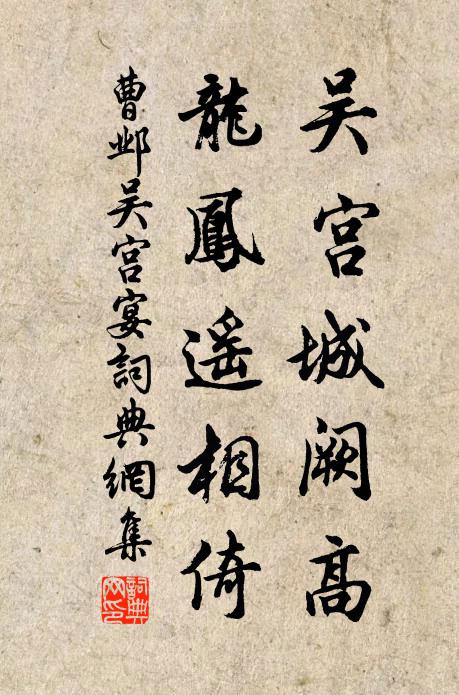 吴宫城阙高
龍鳳遥相倚
曹邺吴宫宴詞典網集
詞典
网印